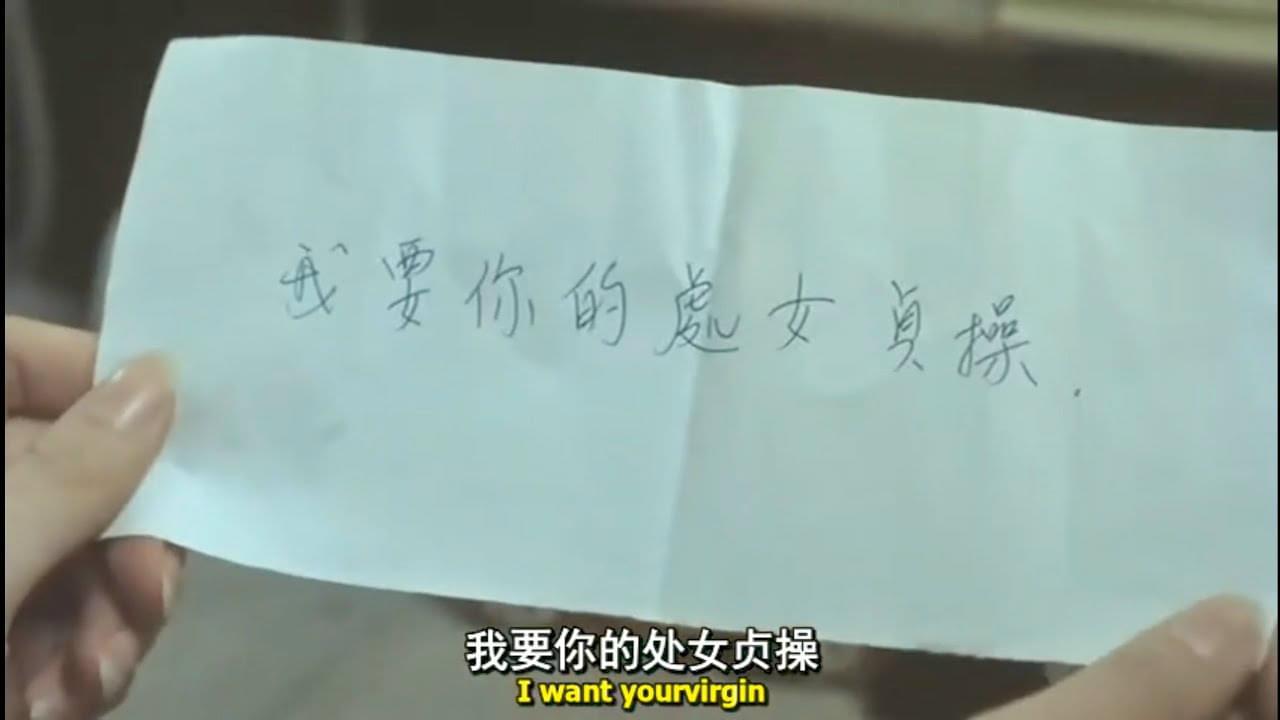 我要你的處女貞操.
我要你的处女贞操
I want yourvirgin